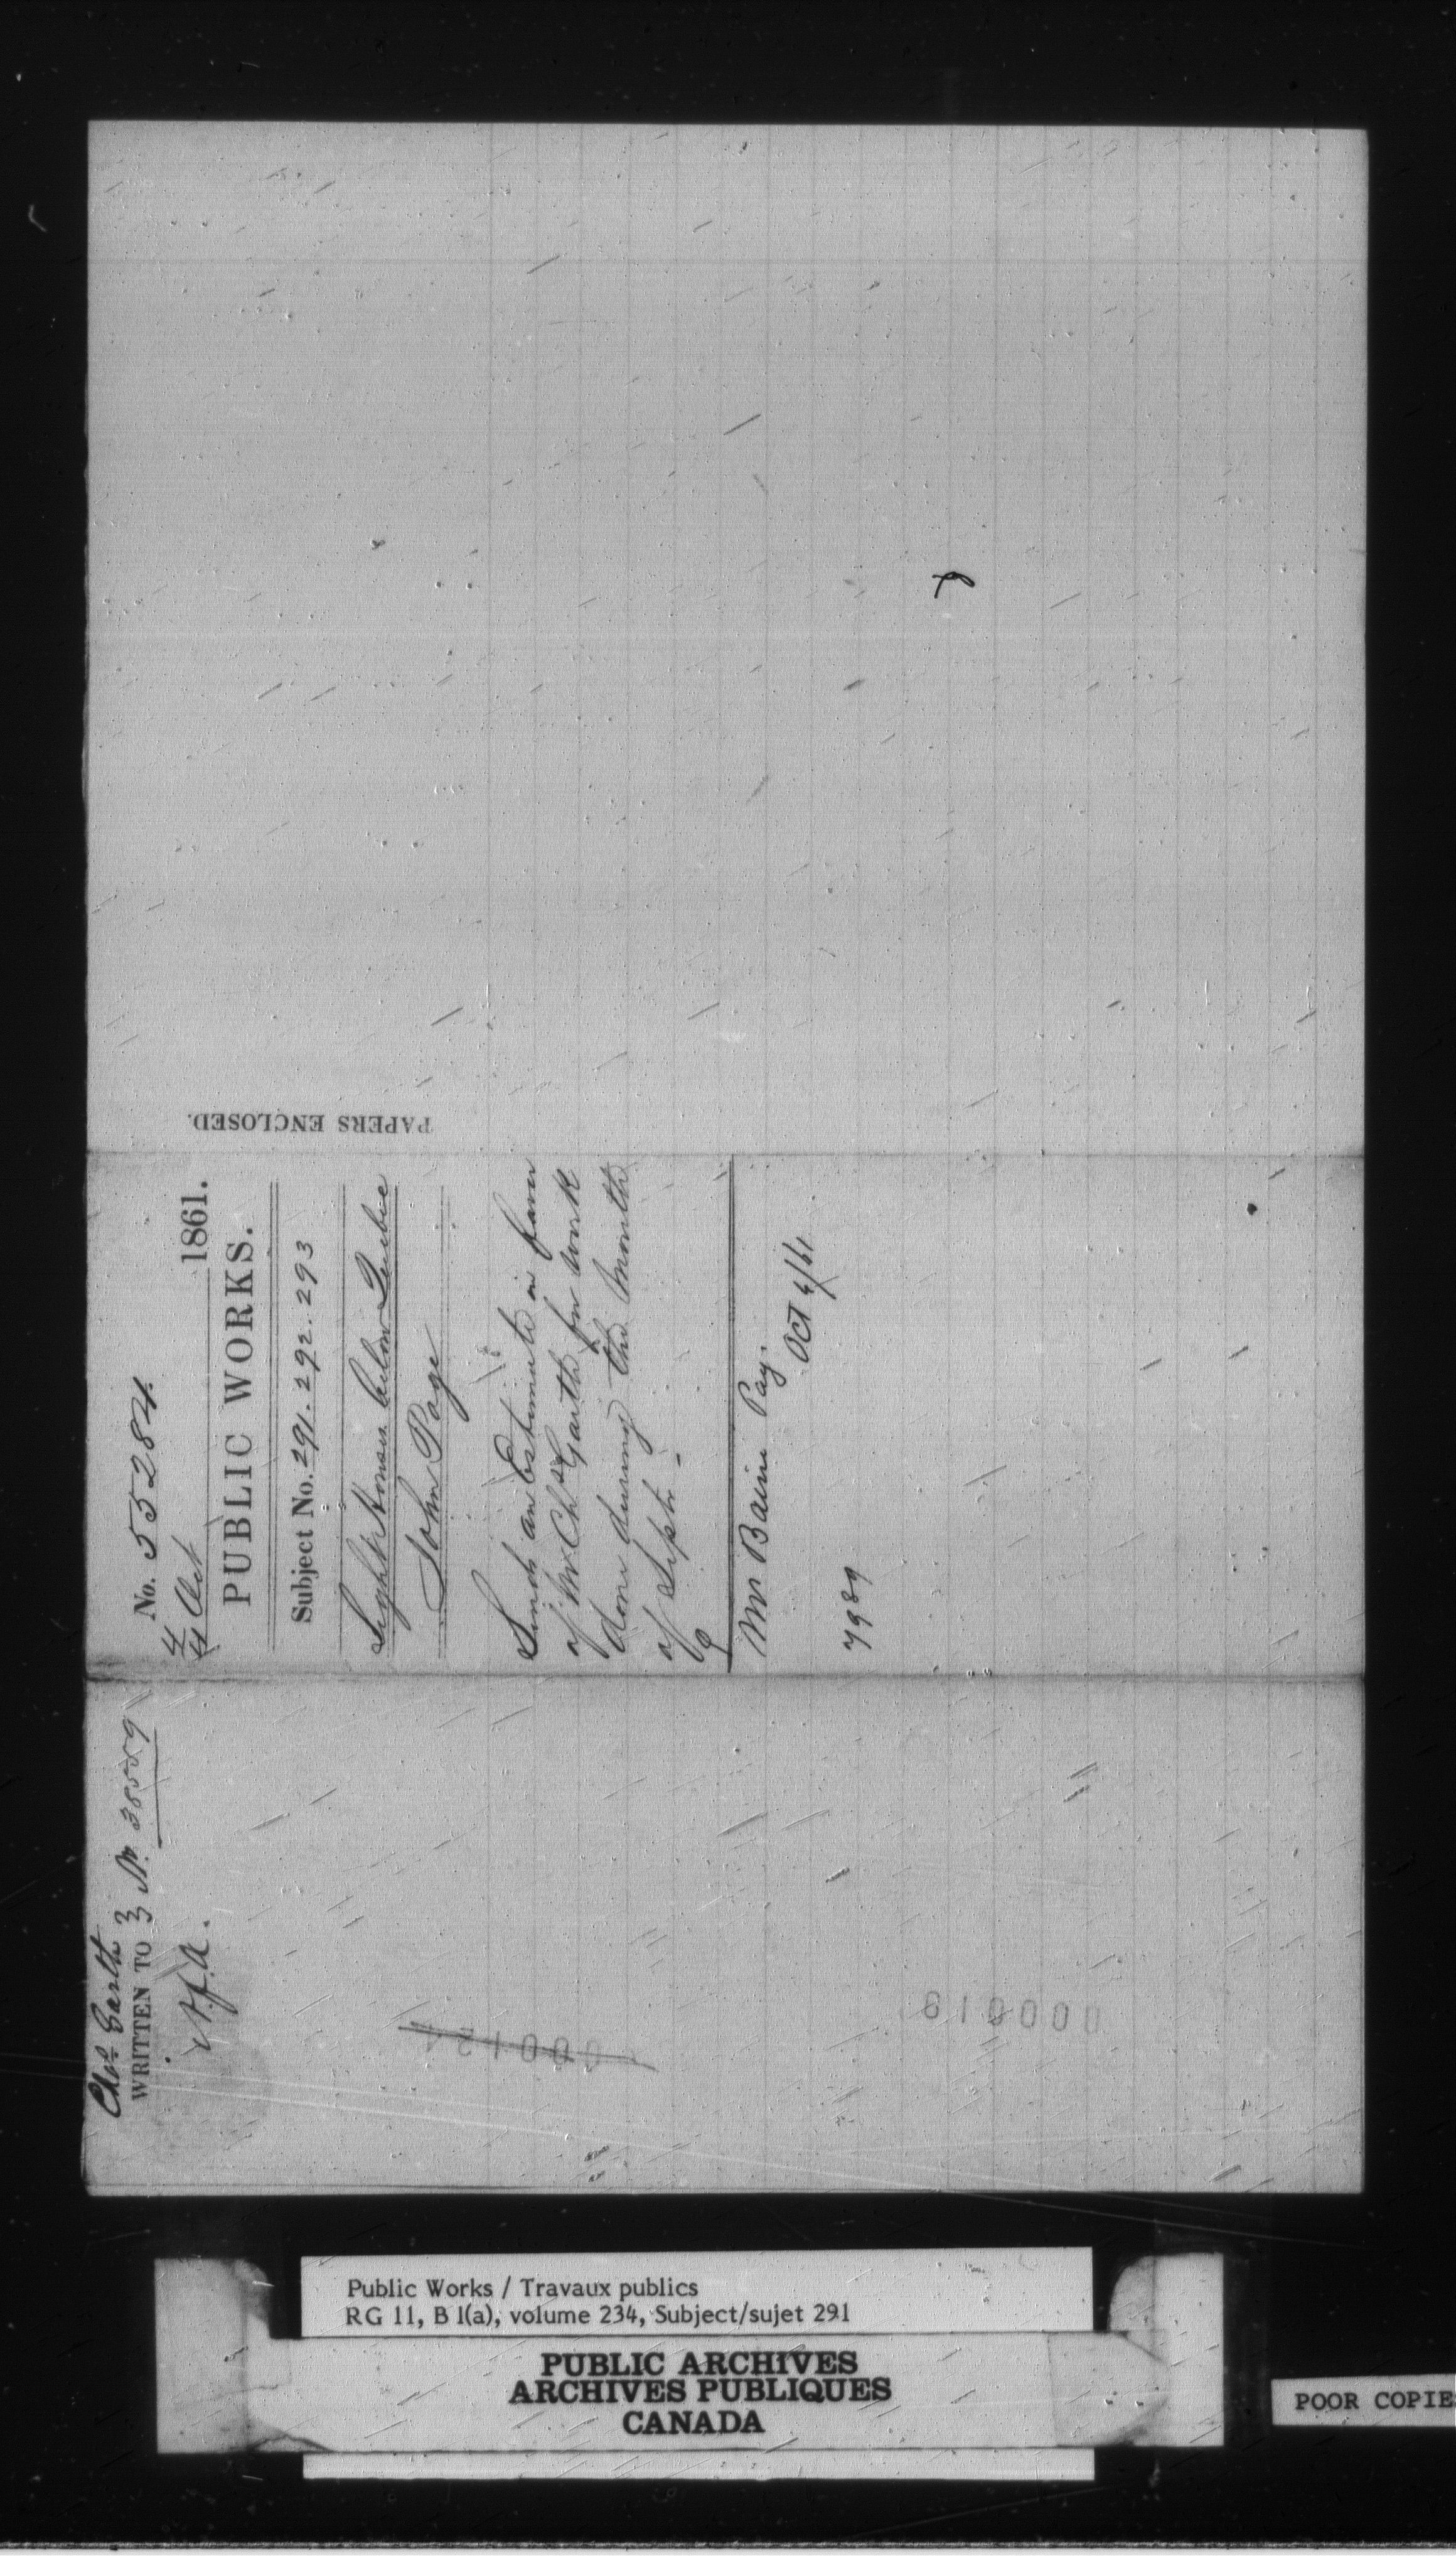 No. 55284.
4 Oct 1861.
PUBLIC WORKS.
Subject No. 291. 292. 293
Light Houses below Quebec
John Page
Sends an Estimate in favor
of Mr Chs Garth for work
done during the month
of Septr -
Mr Bain Pay.
Oct 4/61.
7989
PAPERS ENCLOSED.
Chas Garth
WRITTEN TO 3 No. 38559
000019
Public Works / Travaux publics
RG 11, B 1(a), volume 234, Subject/sujet 291
PUBLIC ARCHIVES
ARCHIVES PUBLIQUES
CANADA
POOR COPIE